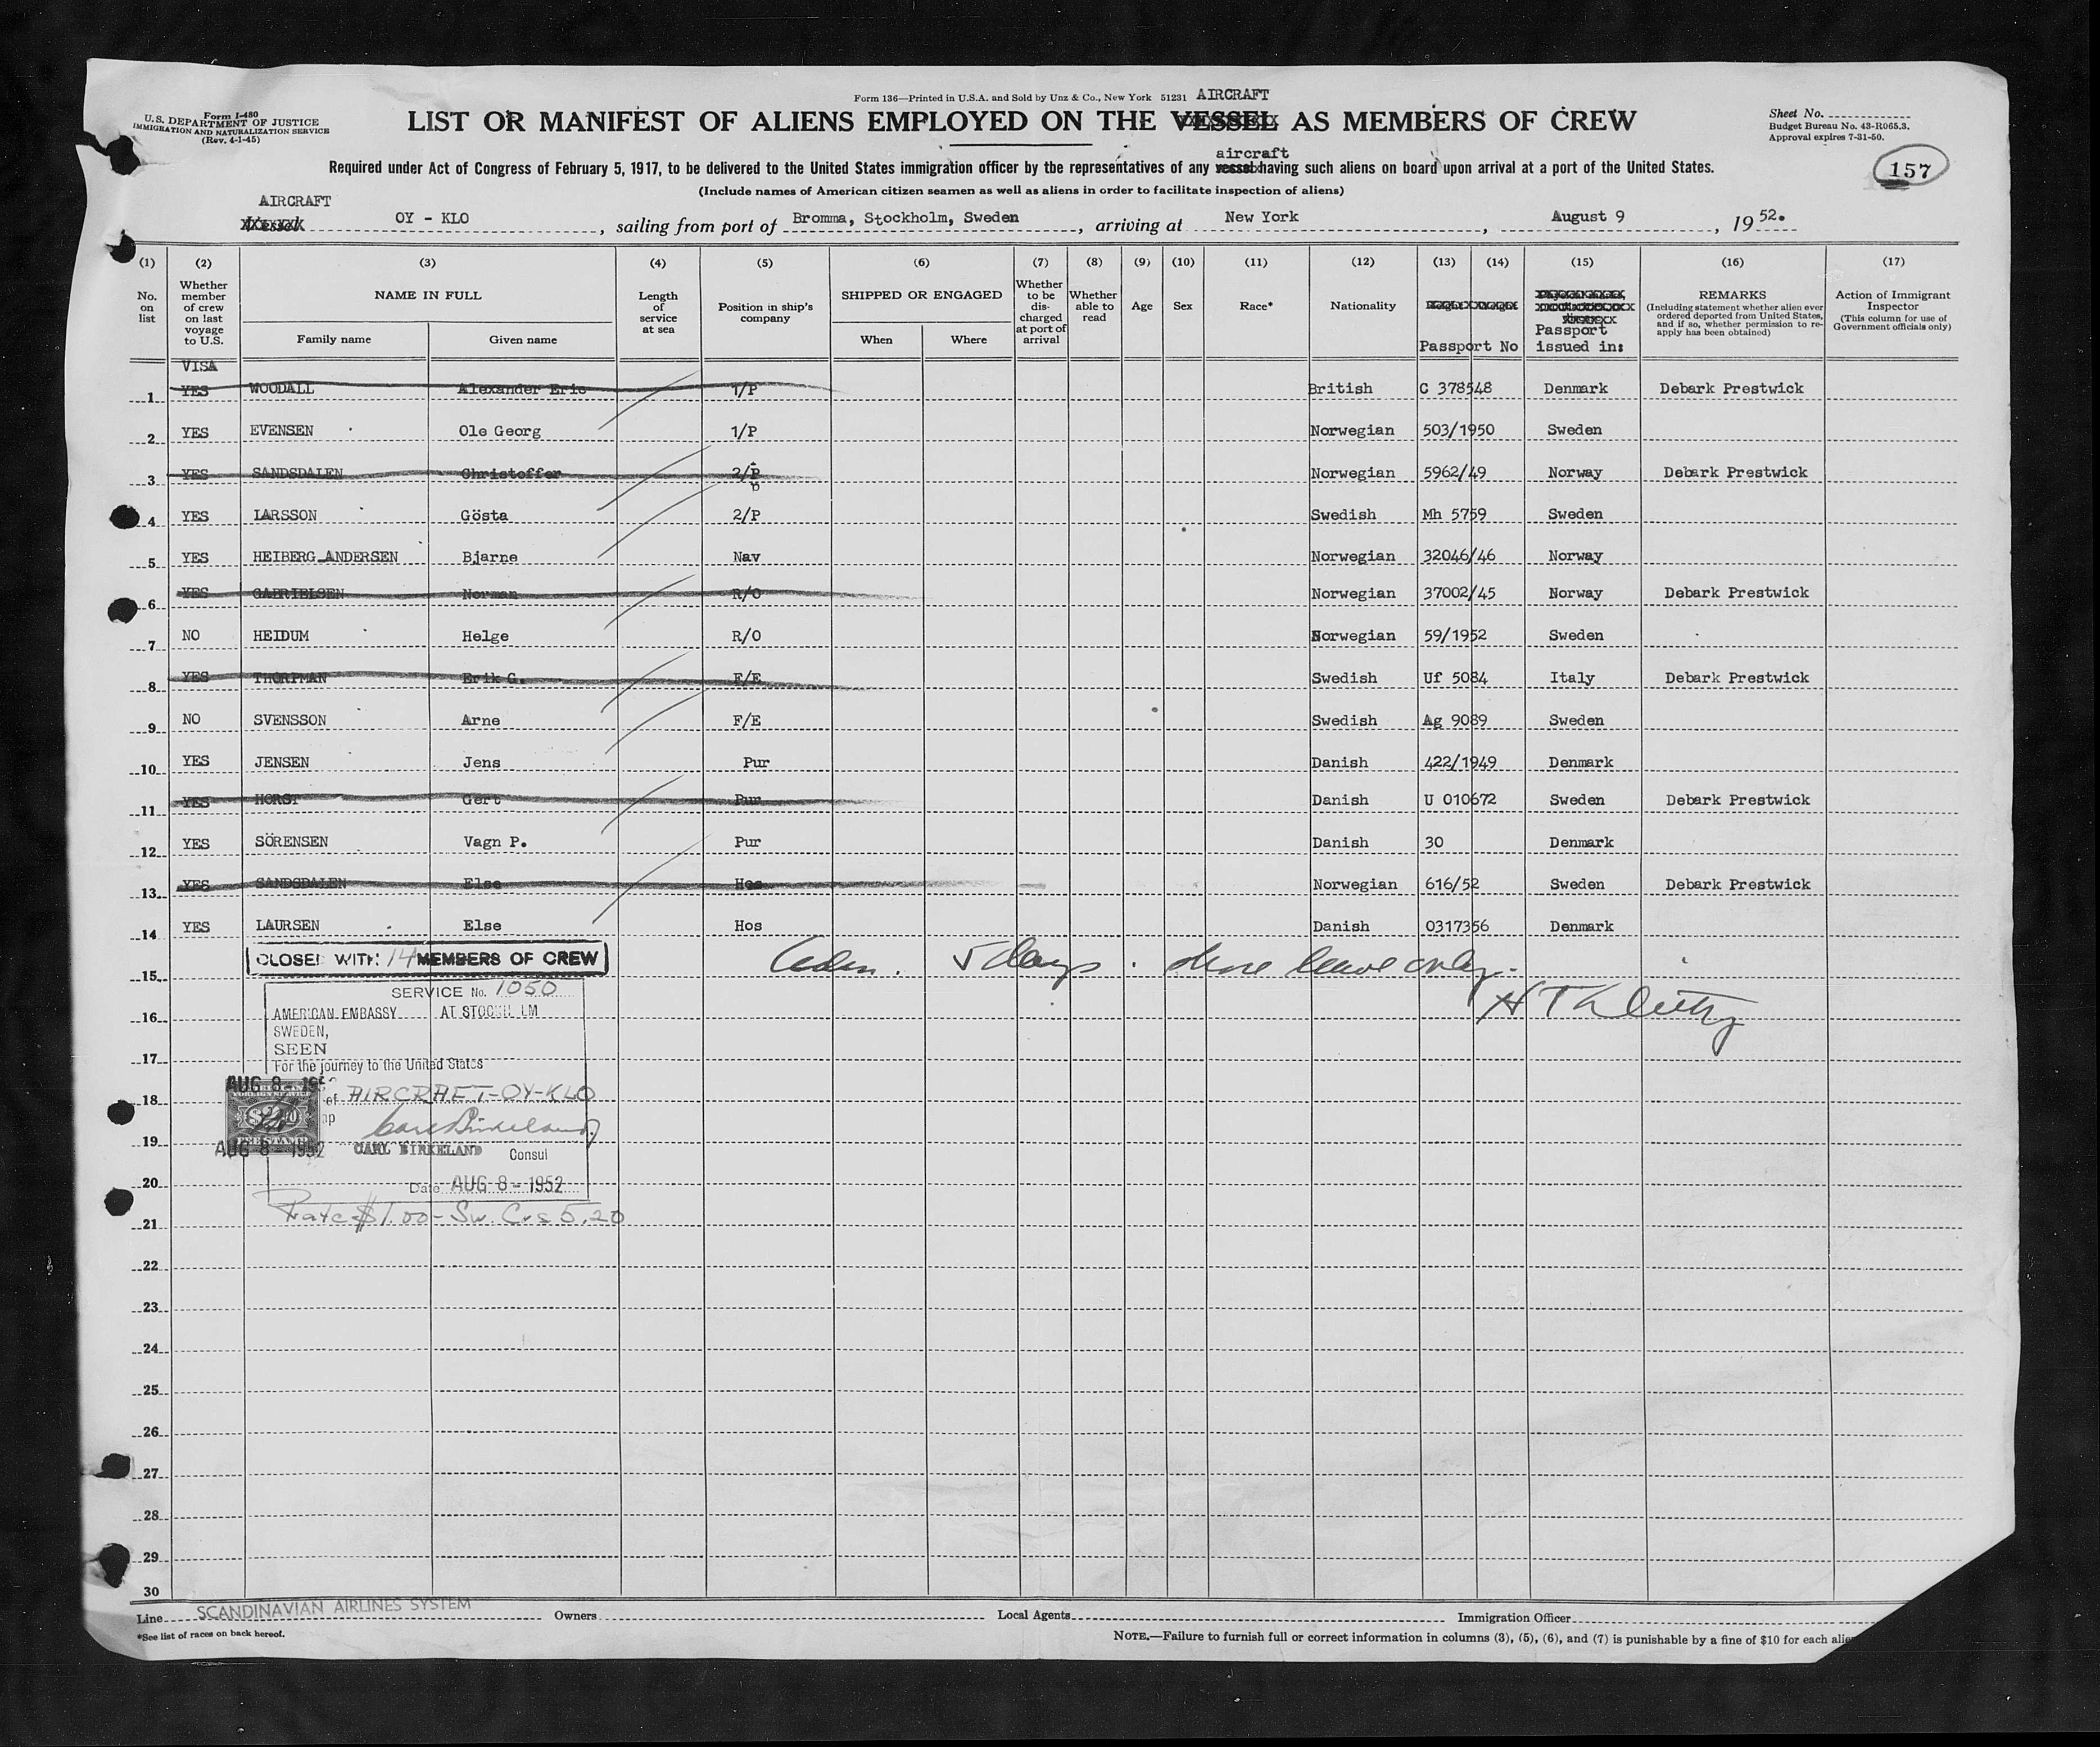 Form 136—Printed in U.S.A. and Sold by Unz & Co., New York 51231 AIRCRAFT
Form I-480
U.S. DEPARTMENT OF JUSTICE
IMMIGRATION AND NATURALIZATION SERVICE
(Rev. 4-1-45)
LIST OR MANIFEST OF ALIENS EMPLOYED ON THE VESSEL AS MEMBERS OF CREW
Sheet No.
Budget Bureau No. 43-R065.3.
Approval expires 7-31-50.
aircraft
Required under Act of Congress of February 5, 1917, to be delivered to the United States immigration officer by the representatives of any vessel having such aliens on board upon arrival at a port of the United States.
157
(Include names of American citizen seamen as well as aliens in order to facilitate inspection of aliens)
AIRCRAFT
Vessel OY - KLO, sailing from port of Bromma, Stockholm, Sweden, arriving at New York, August 9, 1952.
(1) (2) (3) (4) (5) (6) (7) (8) (9) (10) (11) (12) (13) (14) (15) (16) (17)
No. on list
Whether member of crew on last voyage to U.S.
NAME IN FULL
Family name
Given name
Length of service at sea
Position in ship's company
SHIPPED OR ENGAGED
When
Where
Whether to be discharged at port of arrival
Whether able to read
Age
Sex
Race*
Nationality
Passport No
Passport issued in:
REMARKS
(Including statement whether alien ever ordered deported from United States, and if so, whether permission to re-apply has been obtained)
Action of Immigrant Inspector
(This column for use of Government officials only)
VISA
1 YES WOODALL Alexander Eric 1/P British C 378548 Denmark Debark Prestwick
2 YES EVENSEN Ole Georg 1/P Norwegian 503/1950 Sweden
3 YES SANDSDALEN Christoffer 2/P Norwegian 5962/49 Norway Debark Prestwick
4 YES LARSSON Gösta 2/P Swedish Mh 5759 Sweden
5 YES HEIBERG ANDERSEN Bjarne Nav Norwegian 32046/46 Norway
6 YES GABRIELSEN Norman R/O Norwegian 37002/45 Norway Debark Prestwick
7 NO HEIDUM Helge R/O Norwegian 59/1952 Sweden
8 YES THORPMAN Erik G. F/E Swedish Uf 5084 Italy Debark Prestwick
9 NO SVENSSON Arne F/E Swedish Ag 9089 Sweden
10 YES JENSEN Jens Pur Danish 422/1949 Denmark
11 YES HORST Gert Pur Danish U 010672 Sweden Debark Prestwick
12 YES SÖRENSEN Vagn P. Pur Danish 30 Denmark
13 YES SANDSDALEN Else Hos Norwegian 616/52 Sweden Debark Prestwick
14 YES LAURSEN Else Hos Danish 0317356 Denmark
CLOSED WITH 14 MEMBERS OF CREW
5 days. shore leave only.
15
SERVICE No. 1050
AMERICAN EMBASSY AT STOCKHOLM
16
SWEDEN,
SEEN
17 For the journey to the United States
AUG 8 - 1952
18 of AIRCRAFT-OY-KLO
FOREIGN SERVICE
FEE STAMP
19
AUG 8 - 1952 CARL BIRKELAND Consul
20 Date AUG 8 - 1952
21 Rate $1.00 - Sw. Crs 5.20
22
23
24
25
26
27
28
29
30
Line SCANDINAVIAN AIRLINES SYSTEM Owners Local Agents Immigration Officer
*See list of races on back hereof.
NOTE.—Failure to furnish full or correct information in columns (3), (5), (6), and (7) is punishable by a fine of $10 for each